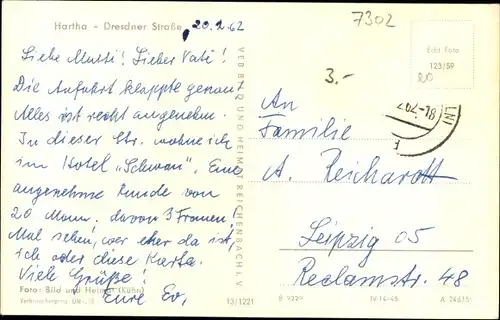 Hartha - Dresdner Straße
20.2.62
7302
Echt Foto
123/59
3.-
Liebe Mutti! Lieber Vati!
Die Anfahrt klappte genau!
Alles ist recht angenehm.
In dieser Str. wohne ich
im Hotel „Schwan". Eine
angenehme Runde von
20 Mann, davon 3 Frauen!
Mal sehen, wer eher da ist,
ich oder diese Karte.
Viele Grüße!
Eure Ev.
Foto: Bild und Heimat (Kühn)
VEB BILD UND HEIMAT REICHENBACH I. V.
An
Familie
A. Reichardt
Leipzig O5
Reclamstr. 48
13/1221
B 9229
IV-14-45
A 246/61